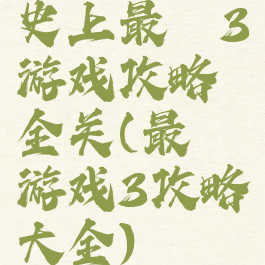 史上最 3
游戏攻略
全关(最
游戏3攻略
大全)